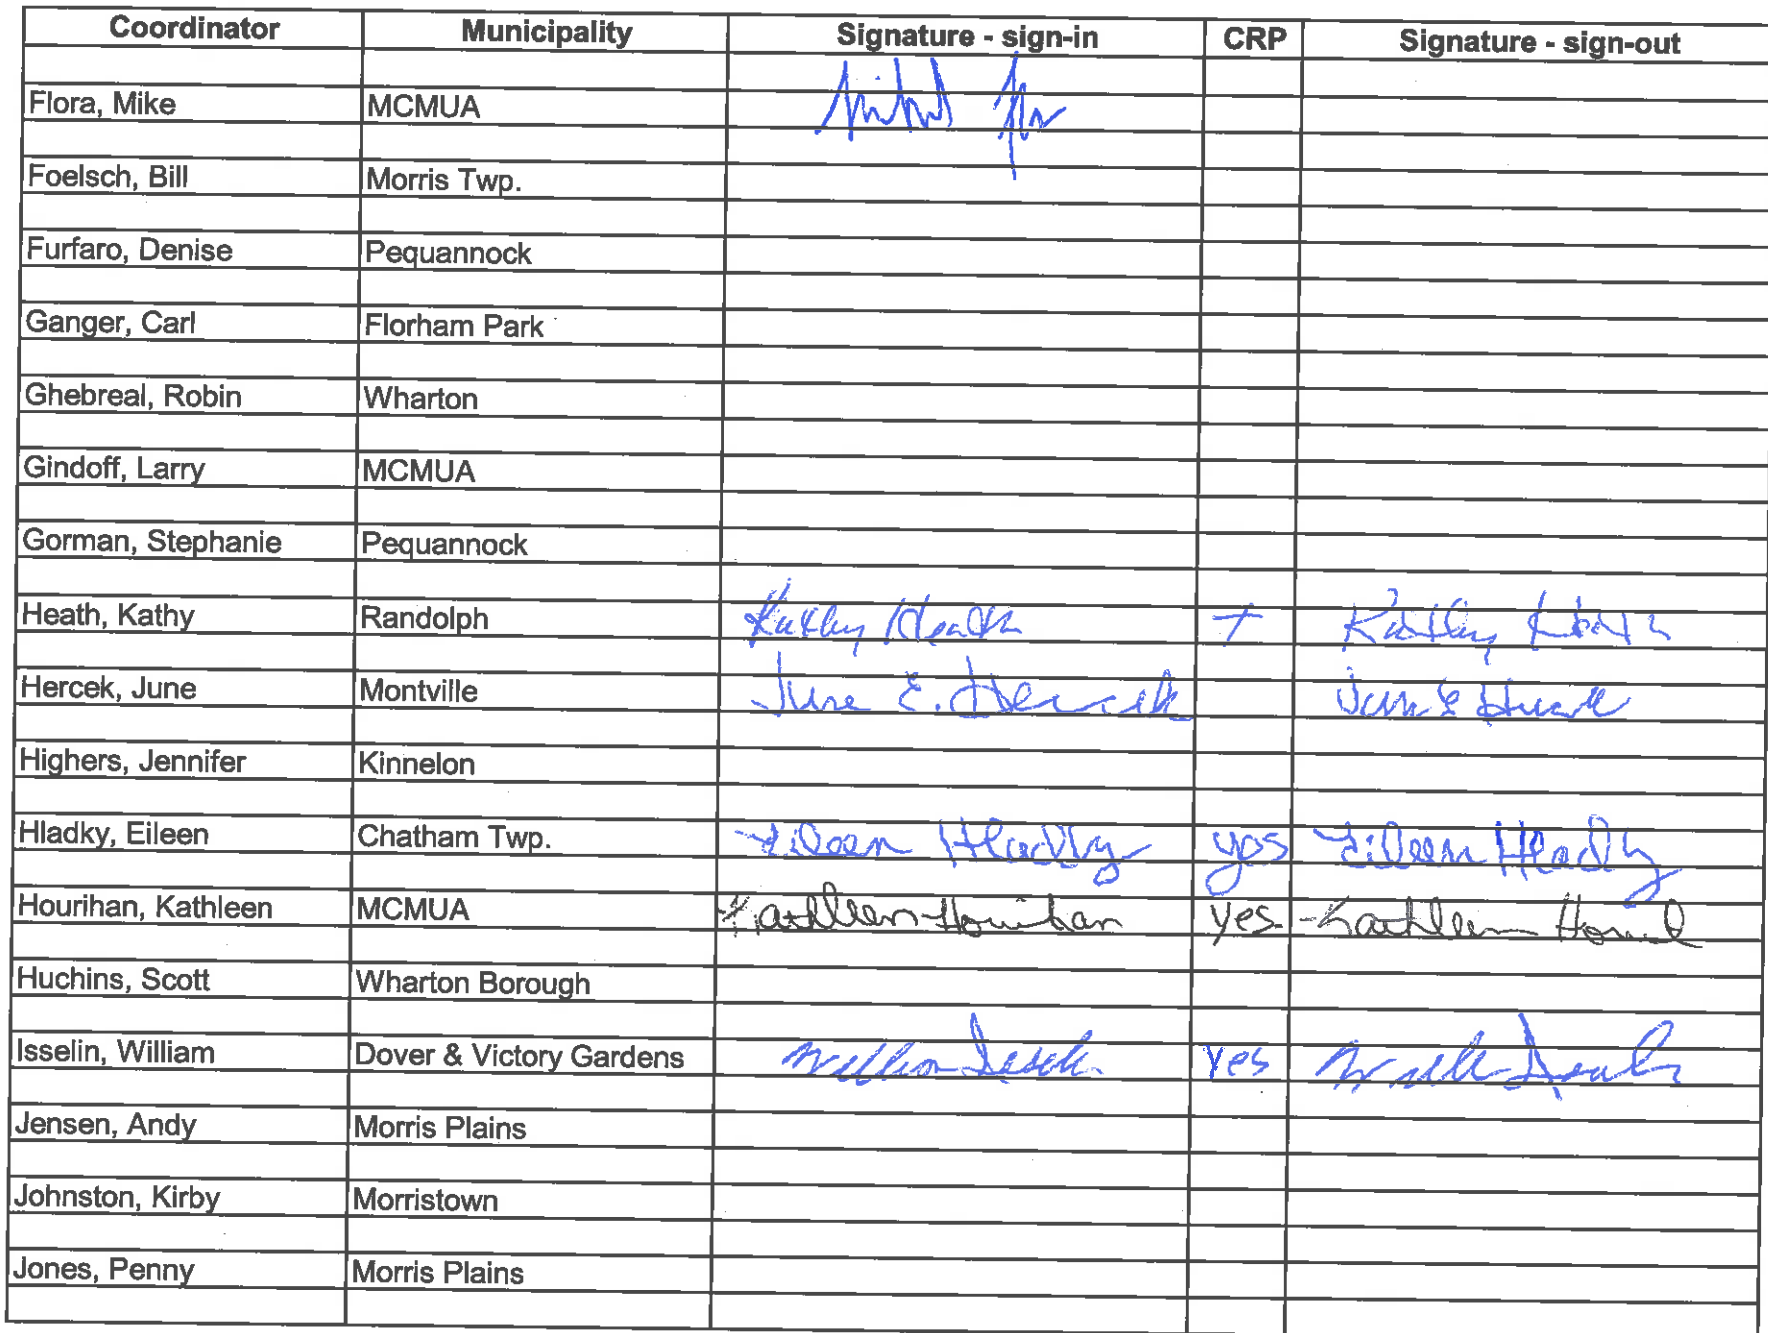 Coordinator Municipality Signature - sign-in CRP Signature - sign-out
Flora, Mike MCMUA
Foelsch, Bill Morris Twp.
Furfaro, Denise Pequannock
Ganger, Carl Florham Park
Ghebreal, Robin Wharton
Gindoff, Larry MCMUA
Gorman, Stephanie Pequannock
Heath, Kathy Randolph Kathy Heath + Kathy Heath
Hercek, June Montville June E. Hercek June E Hercek
Highers, Jennifer Kinnelon
Hladky, Eileen Chatham Twp. Eileen Hladky yes Eileen Hladky
Hourihan, Kathleen MCMUA Kathleen Hourihan yes Kathleen
Huchins, Scott Wharton Borough
Isselin, William Dover & Victory Gardens William yes
Jensen, Andy Morris Plains
Johnston, Kirby Morristown
Jones, Penny Morris Plains